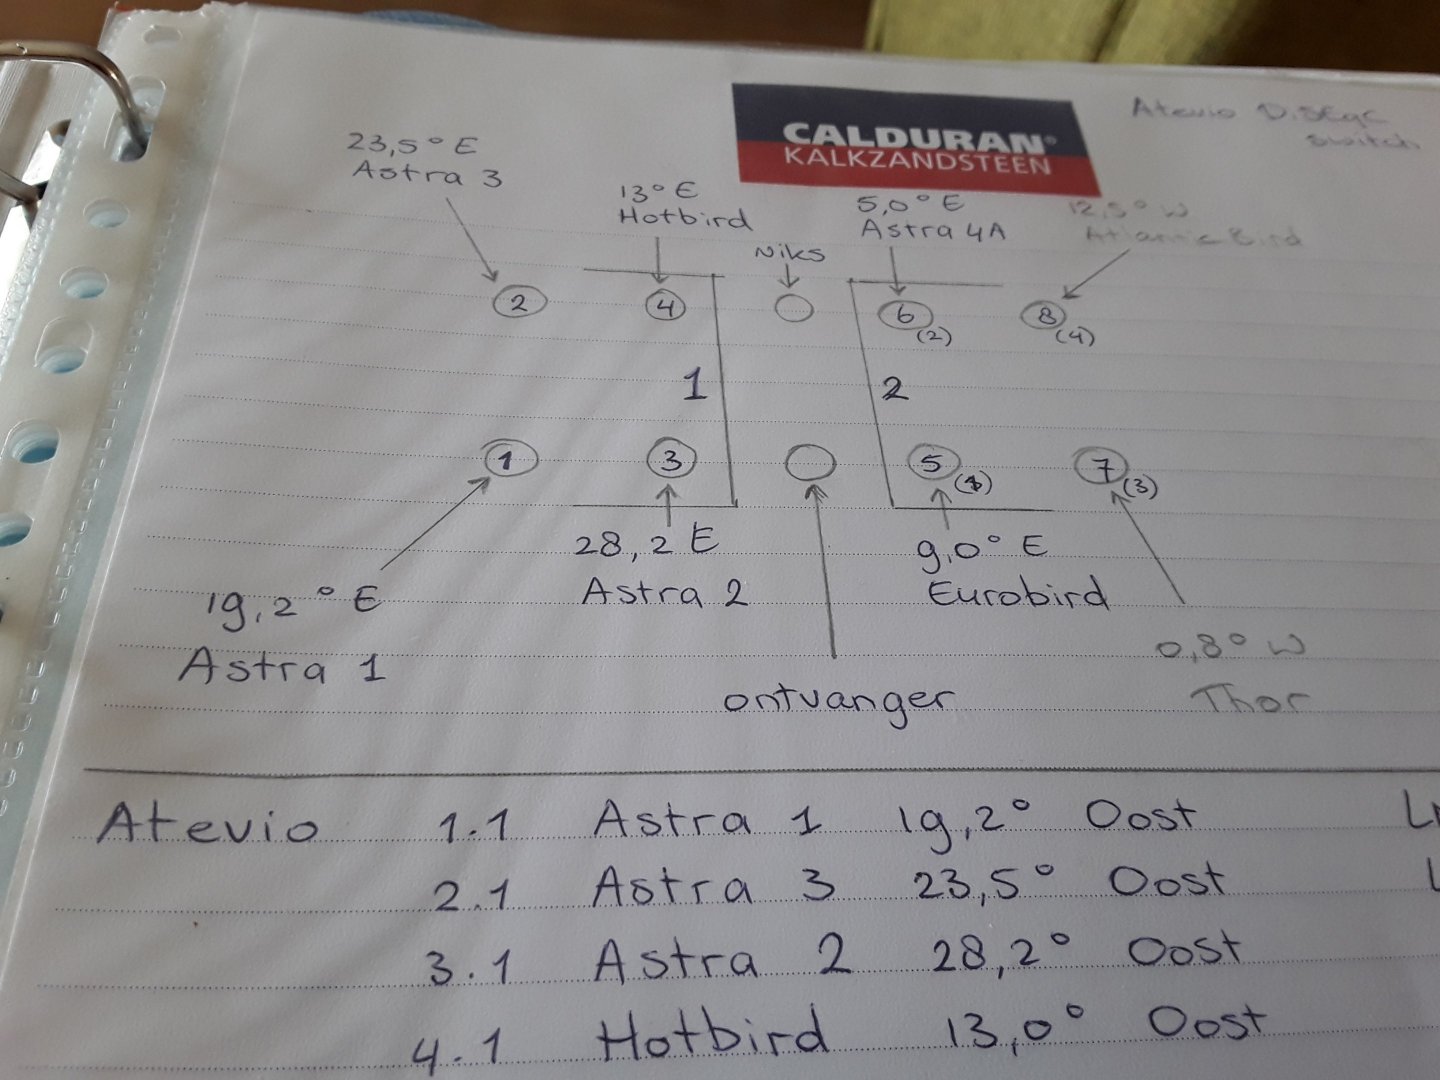 CALDURAN®
KALKZANDSTEEN
Atevio DiSEqC
switch
23,5° E
Astra 3
13° E
Hotbird
Niks
5,0° E
Astra 4A
12,5° W
Atlantic Bird
2
4
6
(2)
8
(4)
1
2
1
3
5
(1)
7
(3)
28,2 E
Astra 2
9,0° E
Eurobird
19,2° E
Astra 1
0,8° W
Thor
ontvanger
Atevio 1.1 Astra 1 19,2° Oost
2.1 Astra 3 23,5° Oost
3.1 Astra 2 28,2° Oost
4.1 Hotbird 13,0° Oost